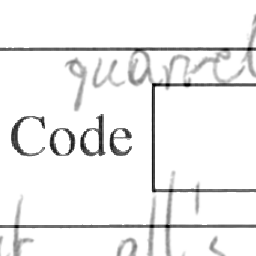 quarrel
Code
all's